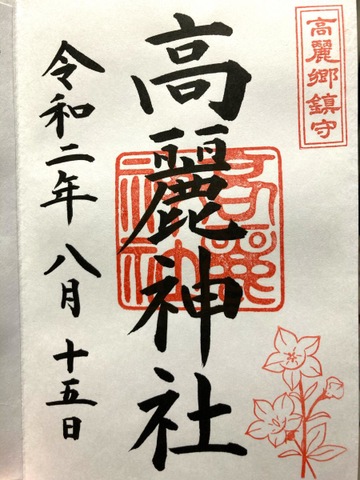 高麗郷鎮守
高麗神社
高麗神社
令和二年八月十五日